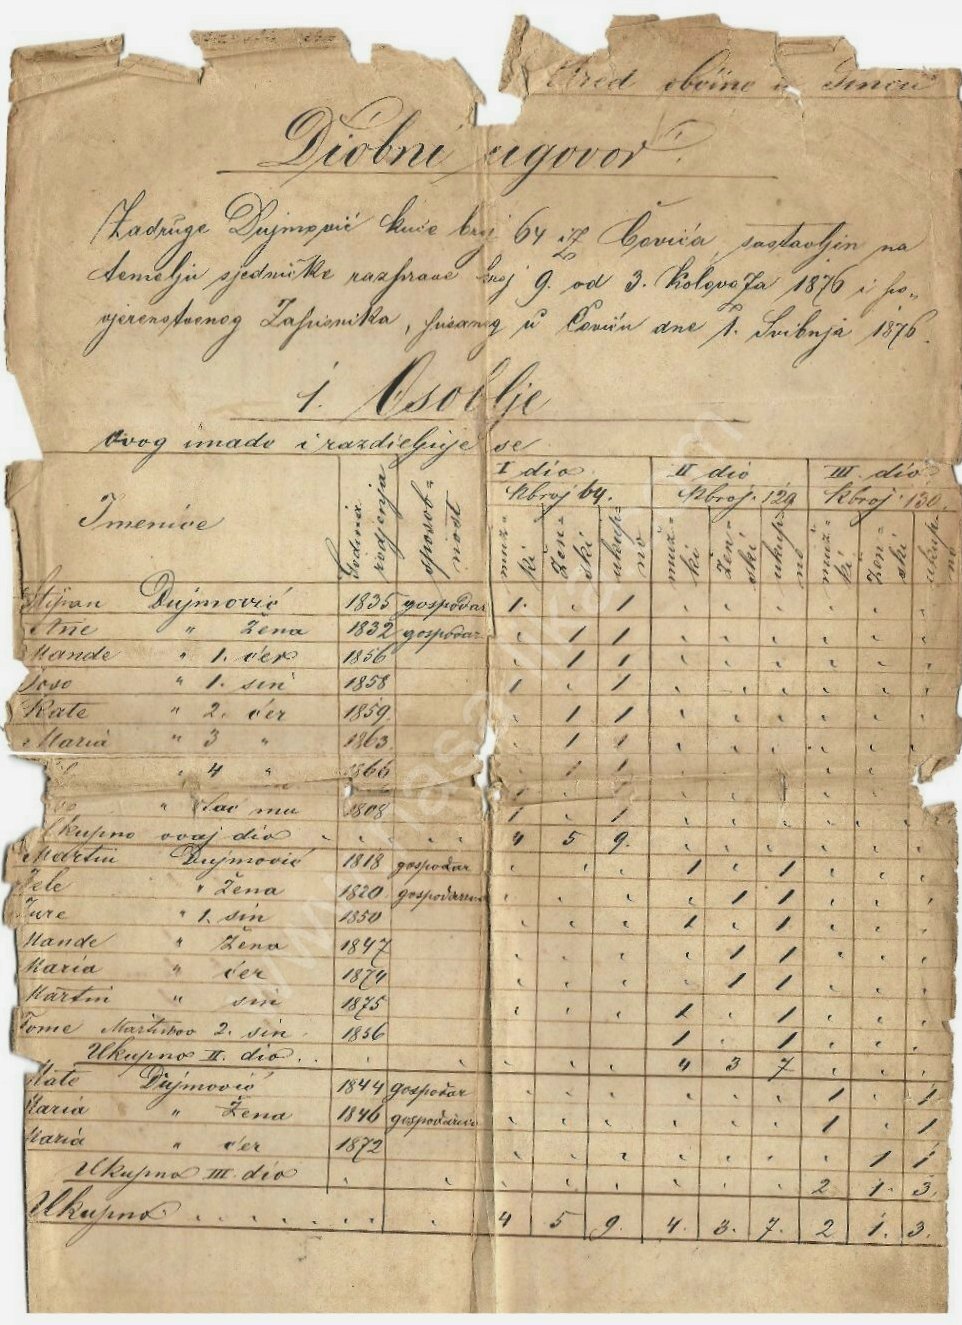 Ured obćine u Sincu
Diobni ugovor.
Zadruge Dujmović kuće broj 64 iz Čovića sastavljen na
temelju sjedničke razprave broj 9. od 3. Kolovoza 1876 i po„
vjerenstvenog Zapisnika, pisanog u Čoviću dne 1. Svibnja 1876.
1. Osoblje
ovog imado i razdieljuje se
Imenice Godina rodjenja sposob= nost I dio Kbroj 64. II dio Kbroj. 129 III. dio Kbroj. 130.
muž= ki Žen= ski ukup= no muž= ki Žen= ski ukup= no muž= ki Žen= ski ukup= no
Stipan Dujmović 1835 gospodar 1. 1
Ane " Žena 1832 gospodar 1 1
Mande " 1. ćer 1856 1 1
Joso " 1. sin 1858 1 1
Kate " 2. ćer 1859. 1 1
Maria " 3 " 1863. 1 1
" 4 " 1866 1 1
1 1
" mu 1808 1 1
Ukupno ovaj dio 4 5 9.
Martin Dujmović 1818 gospodar 1 1
Jele " Žena 1820 1 1
Jure " 1. sin 1850 1 1
Mande " Žena 1847 1 1
Maria " ćer 1874 1 1
Martin " sin 1875 1 1
Tome Martinov 2. sin 1856 1 1
Ukupno II. dio 4 3 7
Mate Dujmović 1844 gospodar 1 1
Maria " Žena 1846 1 1
Maria " ćer 1872 1 1
Ukupno III dio 2 1. 3.
Ukupno 4 5 9. 4. 3. 7. 2 1. 3.